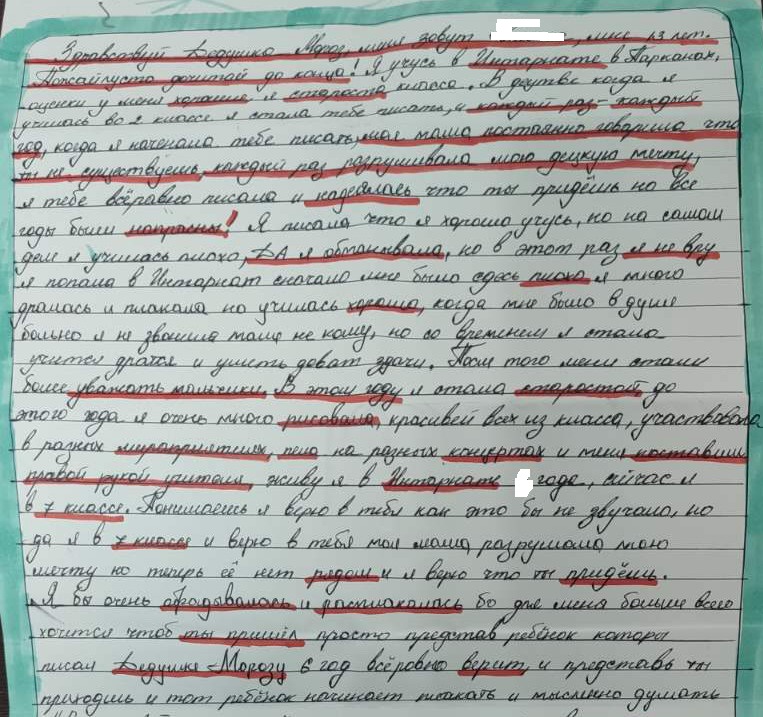 Здравствуй Дедушка Мороз, меня зовут , мне 13 лет.
Пожайлуста дочитай до конца! Я учусь в Интарнате в Парканах,
оценки у меня хорошие я староста класса. В децтве когда я
училась во 2 классе я стала тебе писать, и каждый раз - каждый
год, когда я наченала тебе писать, моя мама постоянно говорила что
ты не существуешь, каждый раз разрушивала мою децкую мечту,
я тебе всёравно писала и надеялась что ты придёшь но все
годы были напрасны! Я писала что я хорошо учусь, но на самом
деле я училась плохо, ДА я обманывала, но в этот раз я не вру
я попала в Интарнат сначало мне было сдесь плохо я много
дралась и плакала но училась хорошо, когда мне было в душе
больно я не звонила маме не кому, но со временем я стала
учится дратся и уметь доват здачи. После того меня стали
более уважать мальчики. В этом году я стала старостой, до
этого года я очень много рисовала, красивей всех из класса, участвовала
в разных мероприятиях, пела на разных концертах и меня поставили
правой рукой учителя, живу я в Интарнате года, сейчас я
в 7 классе. Понимаешь я верю в тебя как это бы не звучало, но
да я в 7 классе и верю в тебя моя мама разрушала мою
мечту но теперь её нет рядом и я верю что ты придёшь.
Я бы очень обрадывалась и расплакалась бо для меня больше всего
хочится чтоб ты пришёл просто представ ребёнок которы
писал Дедушке Морозу 6 год всёровно верит, и представь ты
приходишь и тот ребёнок начинает плакать и мысленно думать